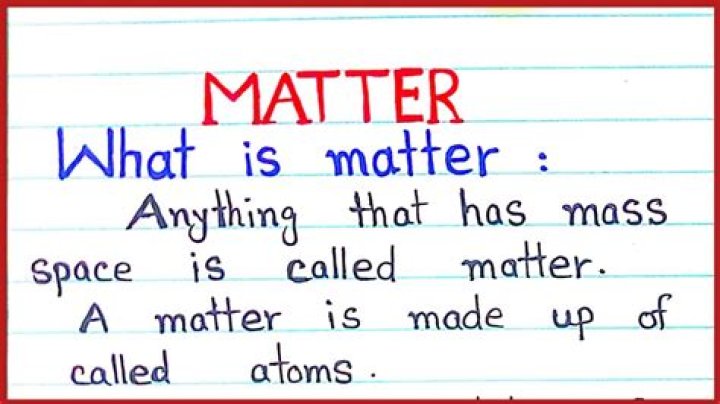 MATTER
What is matter :
Anything that has mass
space is called matter.
A matter is made up of
called atoms.